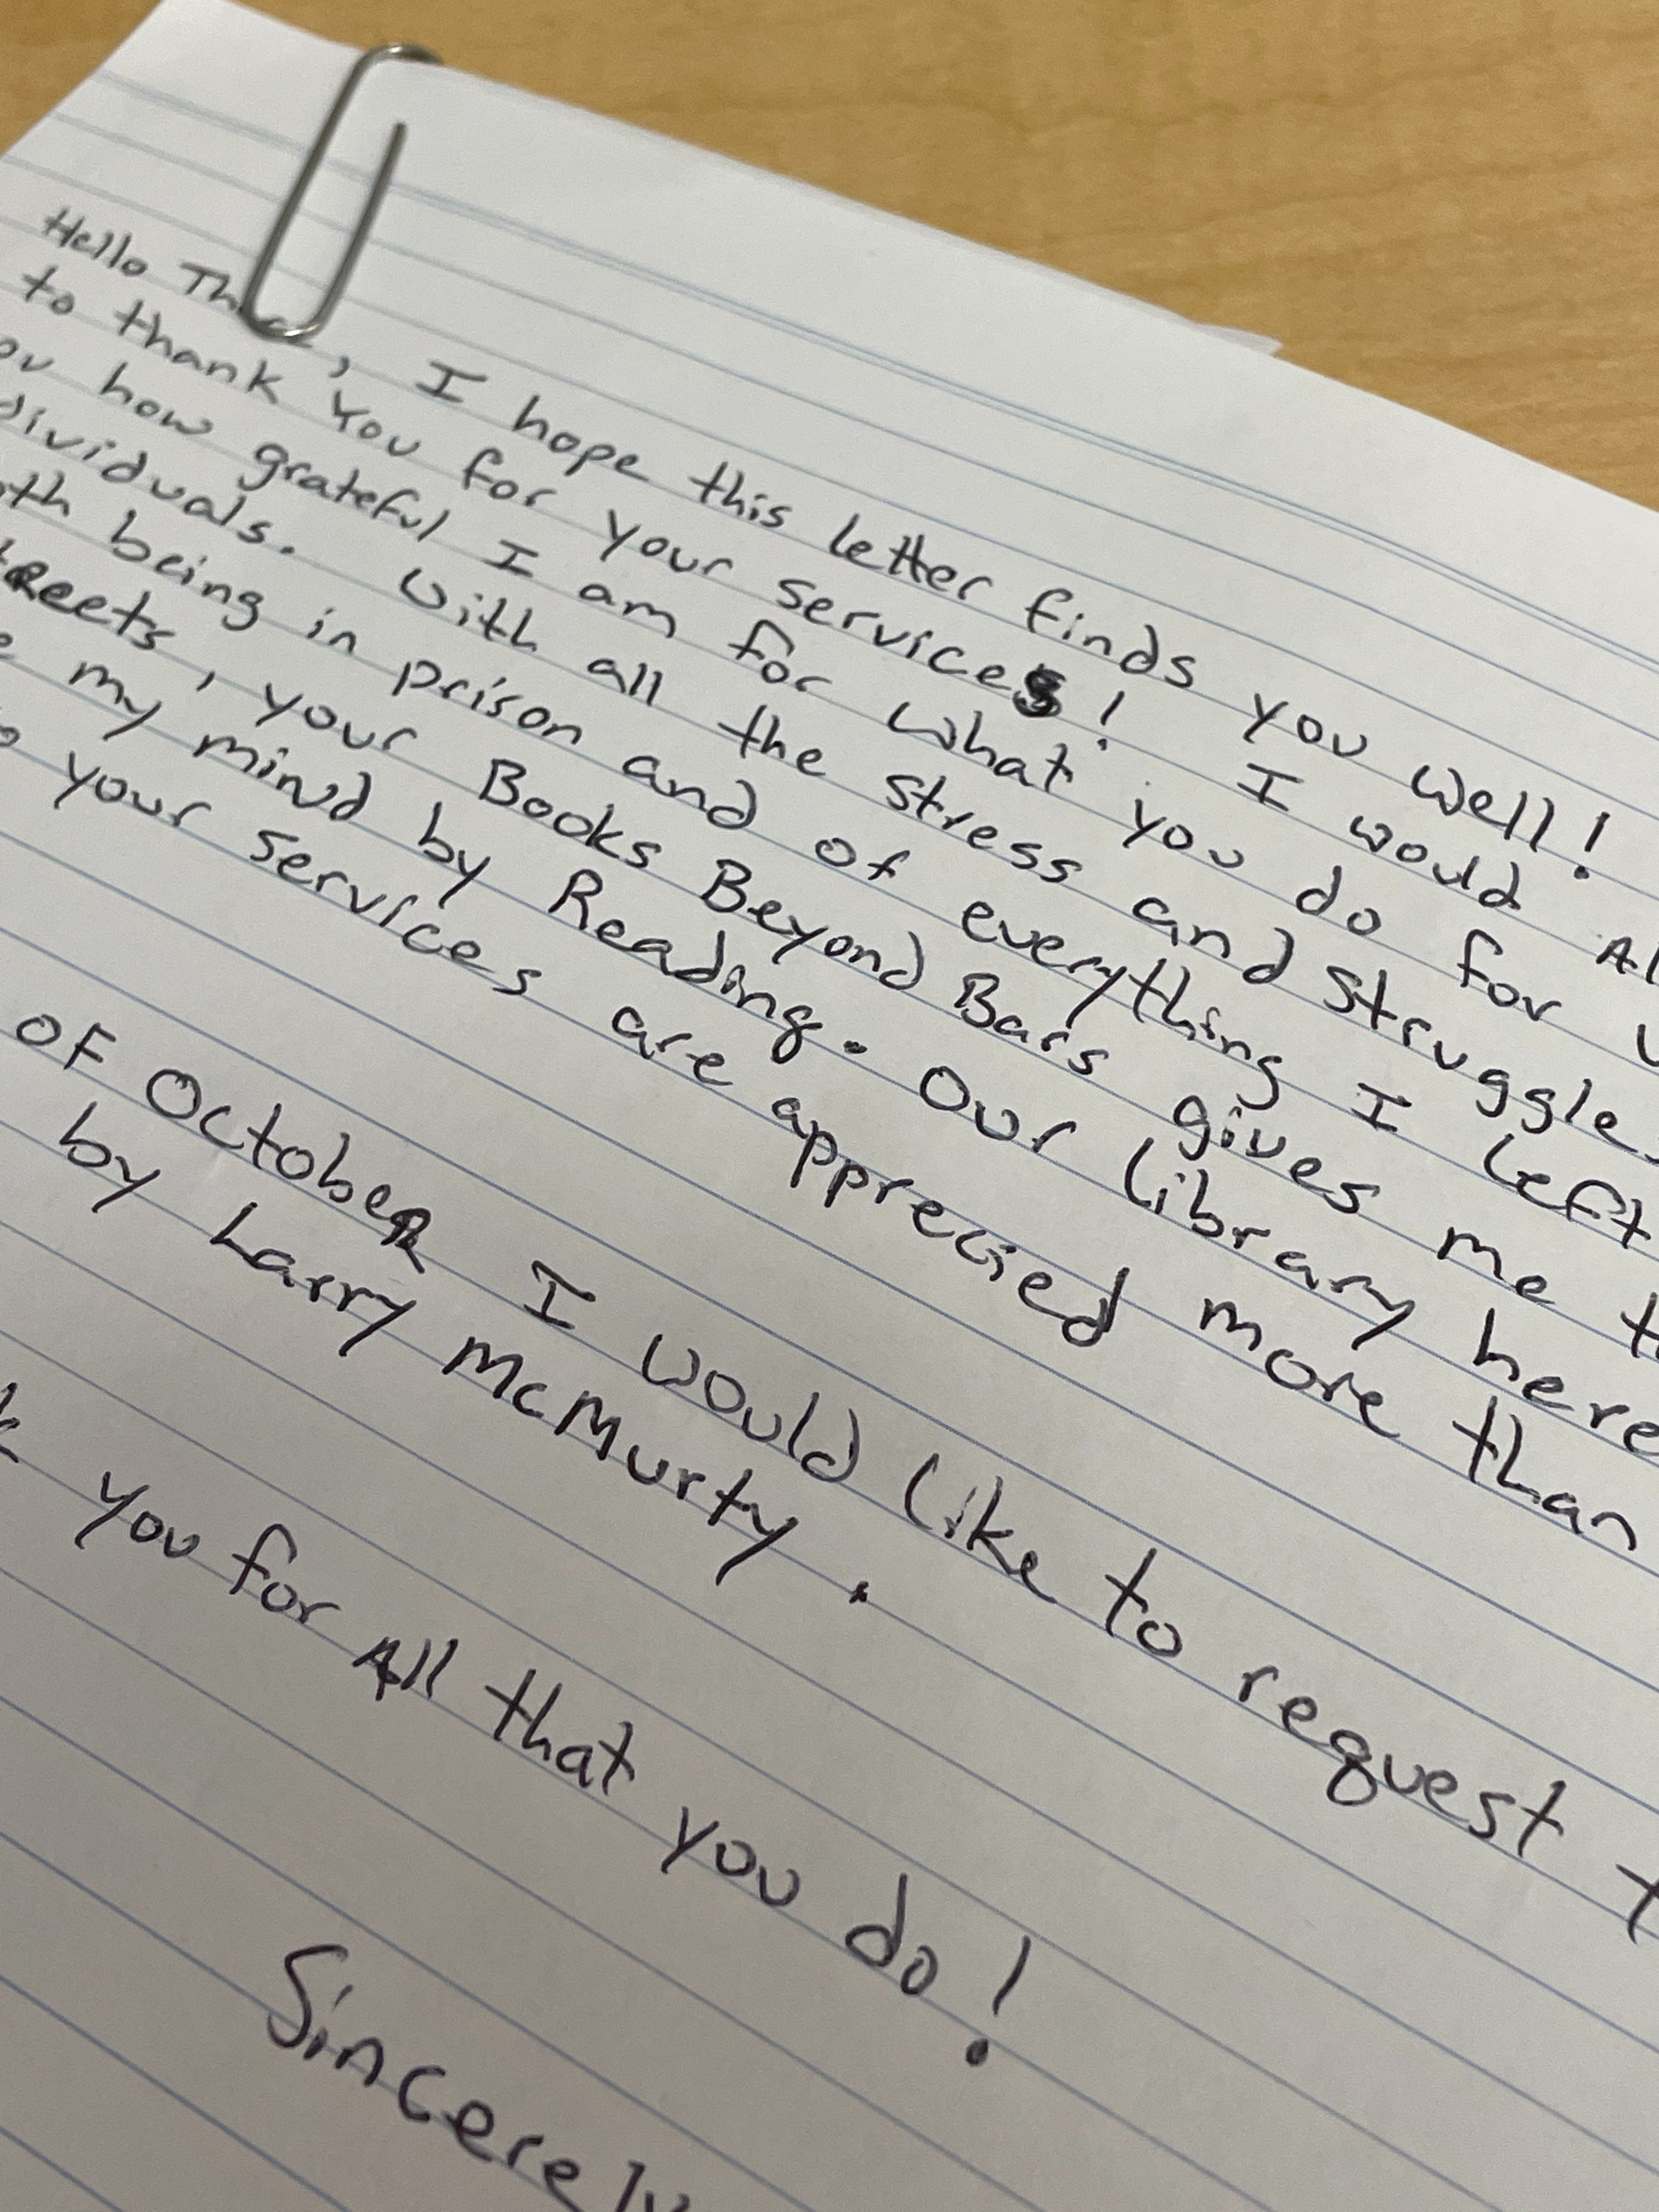 Hello There, I hope this letter finds you well!
to thank you for your services! I would Al
ou how grateful I am for what you do for u
dividuals. With all the stress and struggles
ith being in prison and of everything I left
treets, your Books Beyond Bars gives me t
e my mind by Reading. Our library here
o your services are apprecied more than
OF OctobeR I would like to request t
by Larry McMurty.
k you for All that you do!
Sincerely